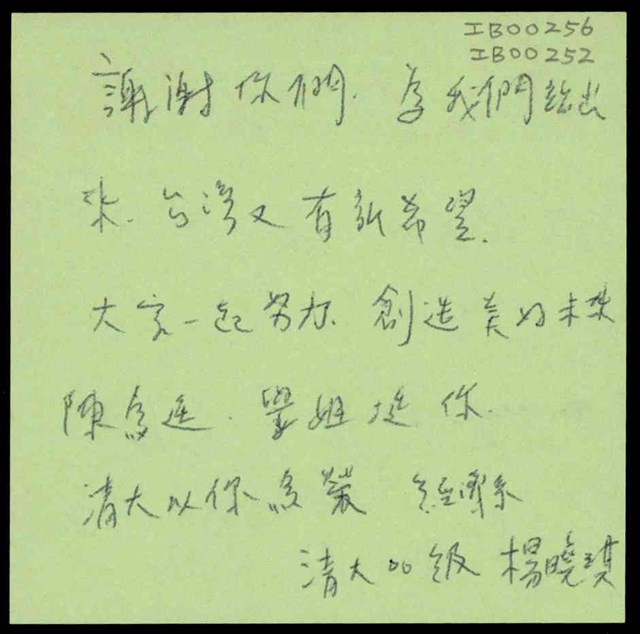 IB00256
IB00252
謝謝你們. 為我們站出
來. 台灣又有新希望.
大家一起努力. 創造美好未來
陳為廷. 學姐挺你.
清大以你為榮 經濟系
清大00級 楊曉琪